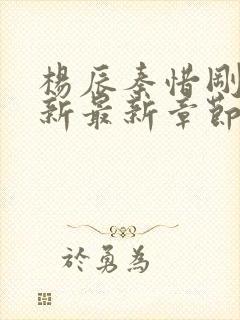 楊辰秦惜剛
新最新章節
於勇為